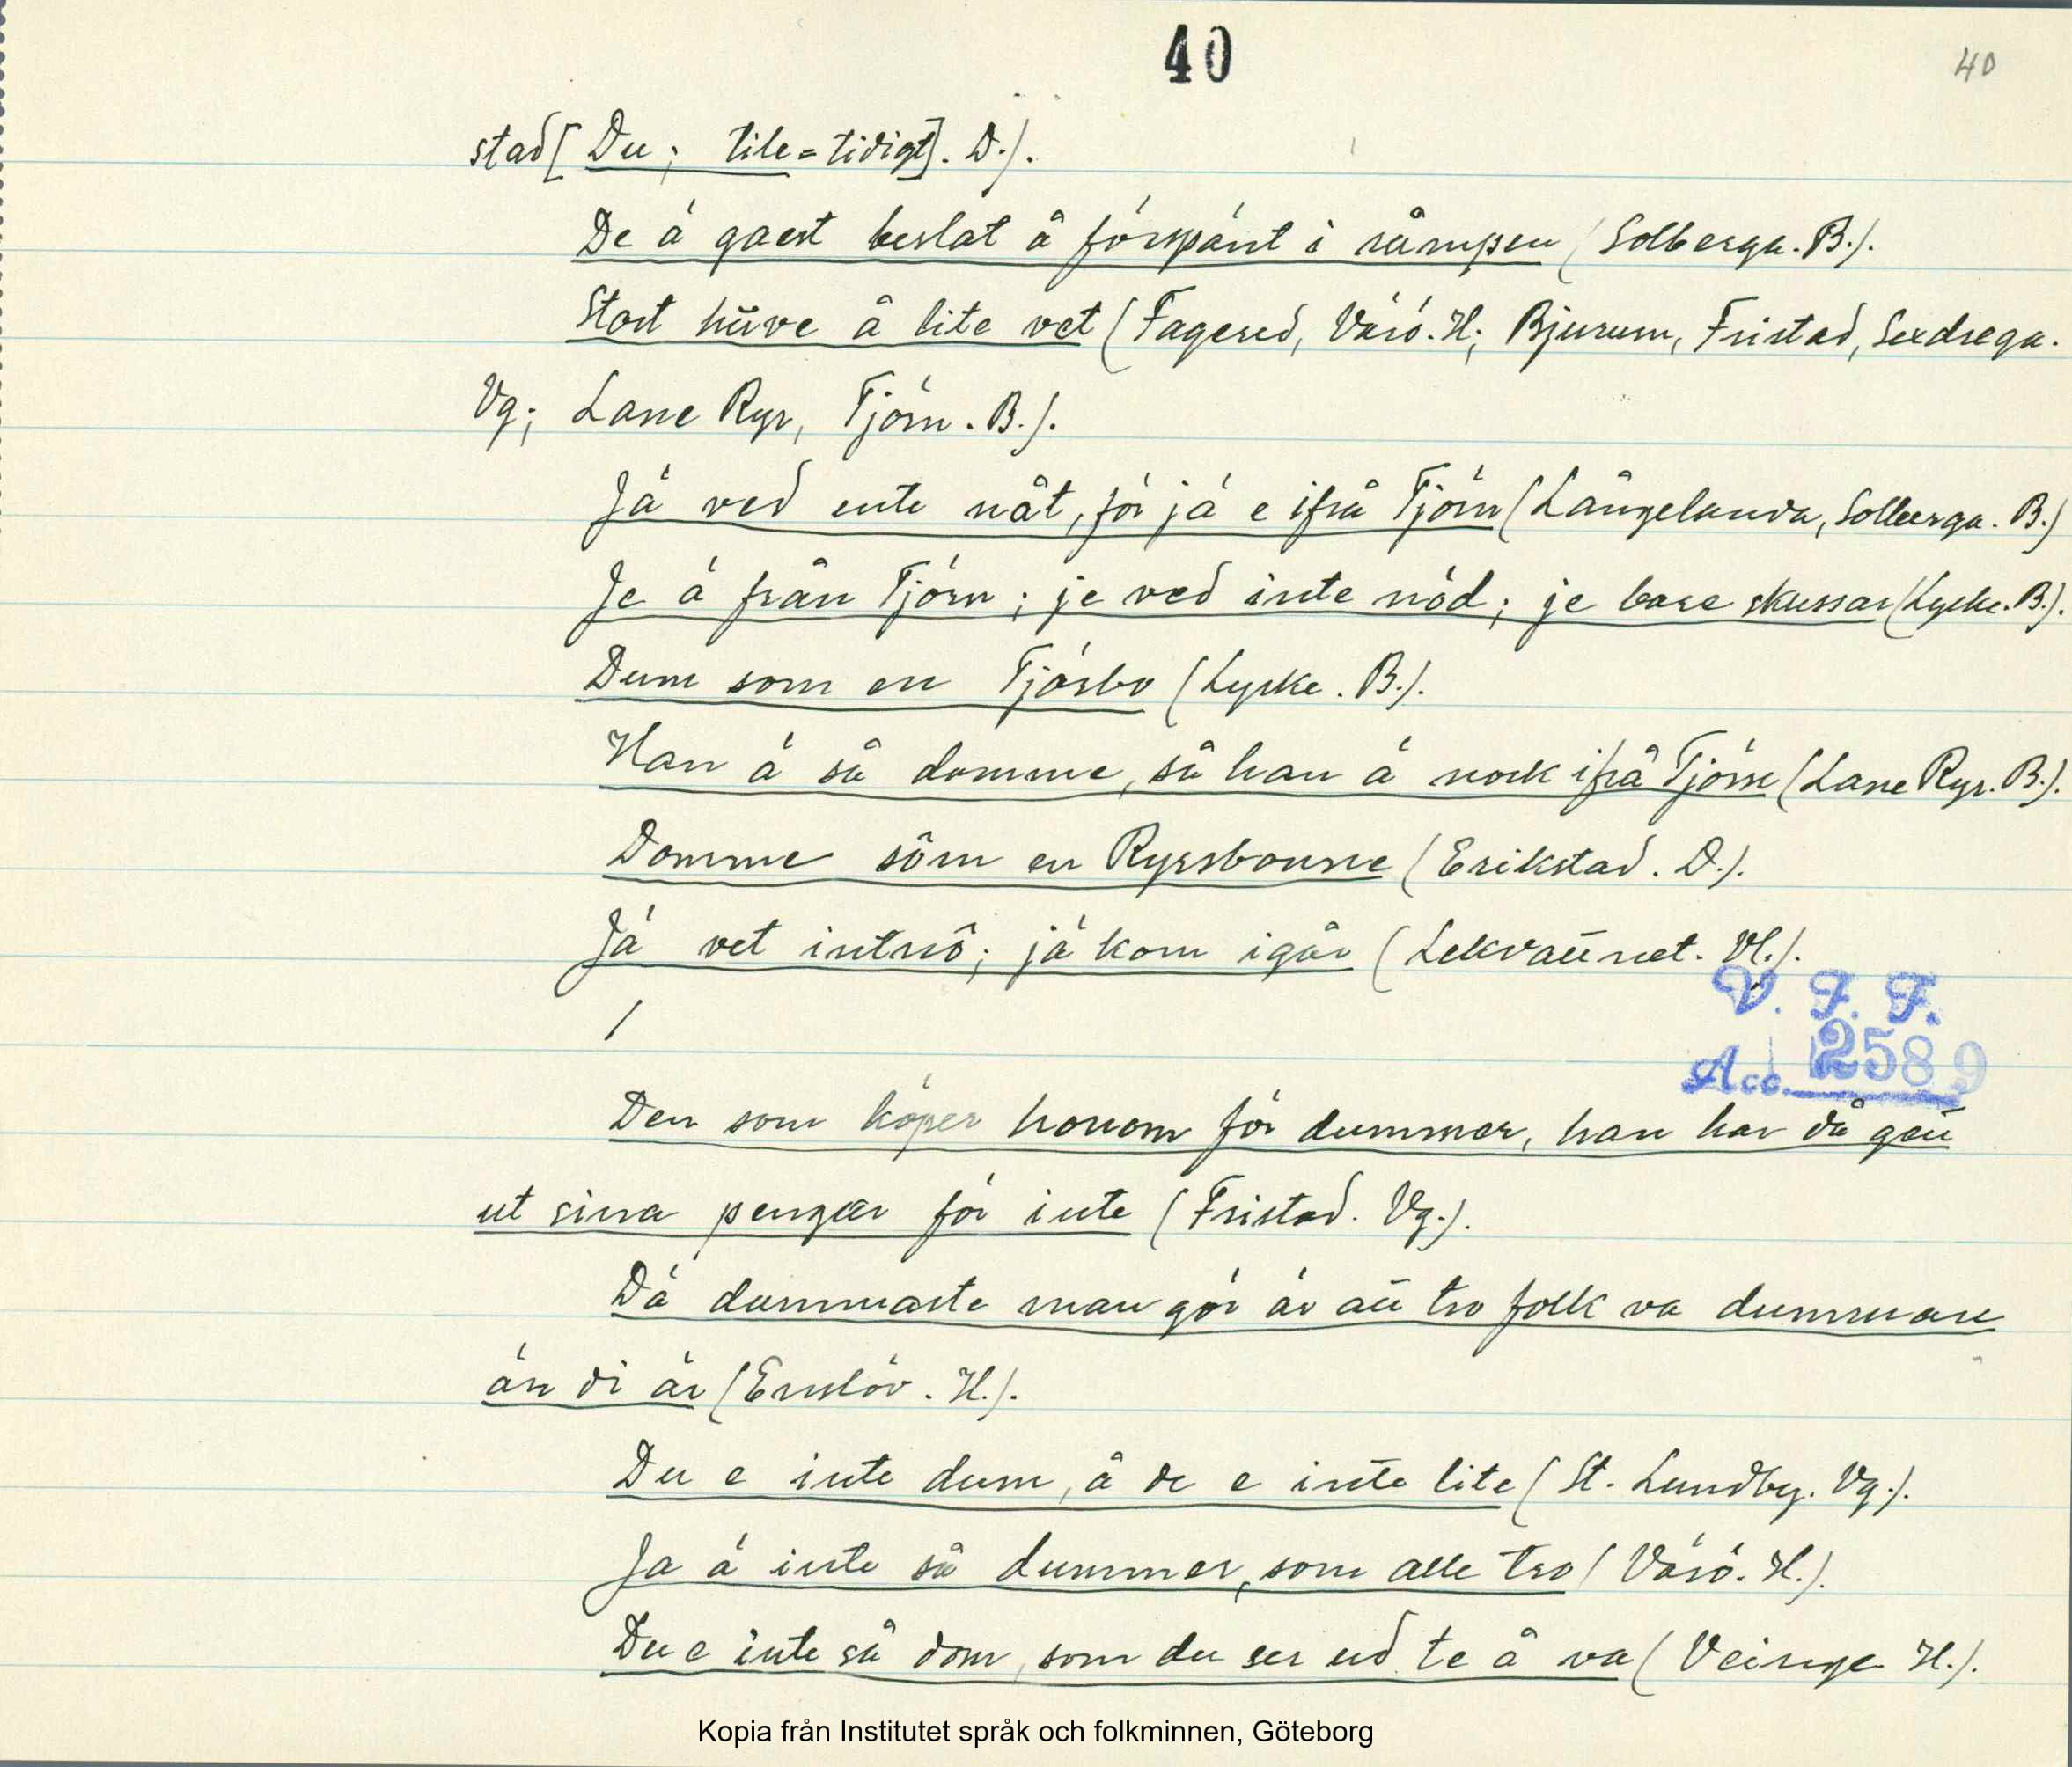 40
40
stad [Du; tile = tidigt]. D.).
De ä gaest beslat å förspänt i råmpen (Solberga. B.).
Stort huve å lite vet (Fagered, Värö. H; Bjurum, Fristad, Sexdrega.
Vg; Lane Ryr, Tjörn. B.).
Jä ved ente nåt, för jä e ifrå Tjörn (Långelanda, Solberga. B.)
Je ä från Tjörn; je ved inte nöd; je bare skussar (Lycke. B.).
Dum som en Tjörbo (Lycke. B.).
Han ä så domme, så han ä nock ifrå Tjörn (Lane Ryr. B.).
Domme sôm en Ryrsbonne (Erikstad. D.).
Jä vet intnô; jä kom igår (Lekvattnet. Vl.).
V. F. F.
Acc. 2589
Den som köper honom för dummer, han har då gett
ut sina pengar för inte (Fristad. Vg.).
Dä dummaste man gör är att tro folk va dummare
än di är (Enslöv. H.).
Du e inte dum, å de e inte lite (St. Lundby. Vg.).
Ja ä inte så dummer, som alle tro (Värö. H.).
Du e inte så dom, som du ser ud te å va (Veinge H.).
Kopia från Institutet språk och folkminnen, Göteborg